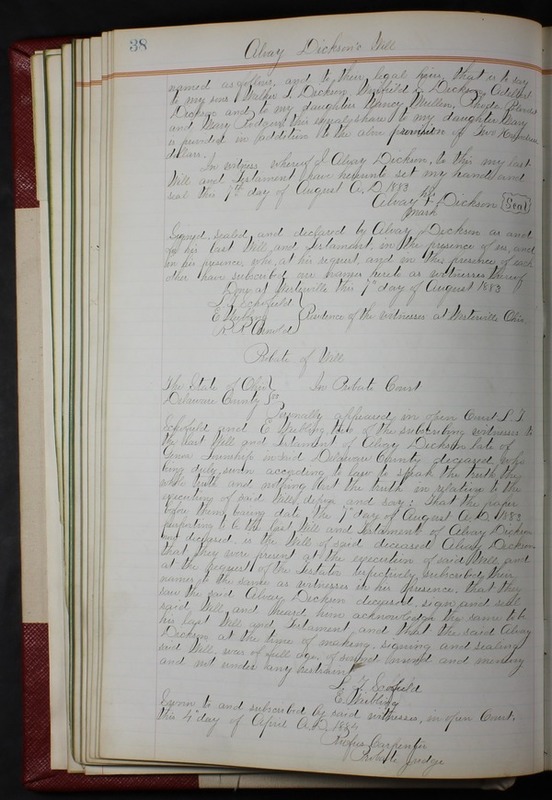 38
Alvay Dickson's Will
named as follows, and to their legal heirs, that is to say
to my sons Walker L Dickson, Winfield S Dickson,
Dickson and to my daughter Nancy Mullen, Rhoda
and Mary this equal share to my daughter Mary
is provided in addition to the above provision of Five Hundred
dollars.
In witness whereof I Alvay Dickson, to this my last
Will and Testament have hereunto set my hand and
seal this 7th day of August A.D. 1883
his
Alvay X Dickson (Seal)
mark
Signed, sealed, and declared by Alvay Dickson as and
for his last Will and Testament, in the presence of us, and
in his presence, who, at his request, and in the presence of each
other have subscribed our names hereto as witnesses thereof
Done at Westerville this 7th day of August 1883
L. F. Schofield
E. Huibling
R. R. Arnold
Residence of the witnesses at Westerville Ohio
Probate of Will
The State of Ohio
Delaware County } ss
In Probate Court
Personally appeared in open Court L. F.
Schofield and E. Huibling two of the subscribing witnesses to
the last Will and Testament of Alvay Dickson late of
Genoa Township in said Delaware County, deceased, who
being duly sworn according to law to speak the truth, the
whole truth and nothing but the truth in relation to the
execution of said Will, depose and say: That the paper
before them, bearing date the 7" day of August A.D. 1883
purporting to be the last Will and Testament of Alvay Dickson
now deceased, is the Will of said deceased Alvay Dickson
that they were present at the execution of said Will, and
at the request of the Testator respectively, subscribed their
names to the same as witnesses in his presence, that they
saw the said Alvay Dickson deceased, sign and seal
said Will, and heard him acknowledge the same to be
his last Will and Testament, and that the said Alvay
Dickson at the time of making, signing and sealing
said Will, was of full age, of sound mind and memory
and not under any restraint
L. F. Schofield
E. Huibling
Sworn to and subscribed by said witnesses, in open Court,
this 4" day of April A.D. 1884
Rufus Carpenter
Probate Judge